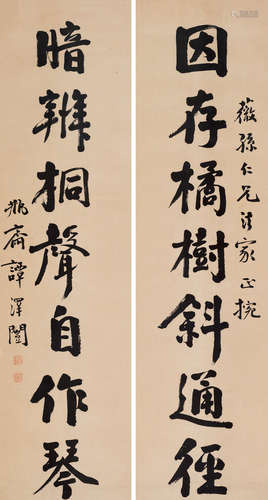 薇孫仁兄法家正捥
因存橘樹斜通徑
暗辨桐聲自作琴
瓶齋譚澤闓